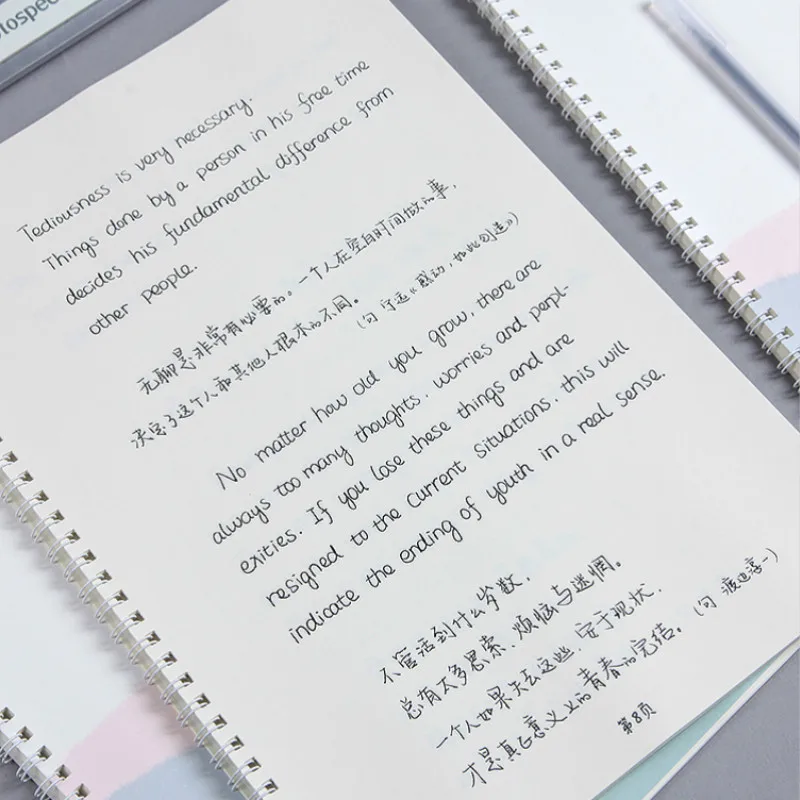 Tediousness is very necessary.
Things done by a person in his free time
decides his fundamental difference from
other people.
无聊是非常有必要的。一个人在空白时间做的事，
决定了这个人和其他人根本的不同。
(句 宁远《感动，如此创造》)
No matter how old you grow, there are
always too many thoughts, worries and perpl-
exities. If you lose these things and are
resigned to the current situations, this will
indicate the ending of youth in a real sense.
不管活到什么岁数，
总有太多思索、烦恼与迷惘。
一个人如果失去这些，安于现状，
才是真正意义上的青春的完结。
(句 渡边淳一)
第8页